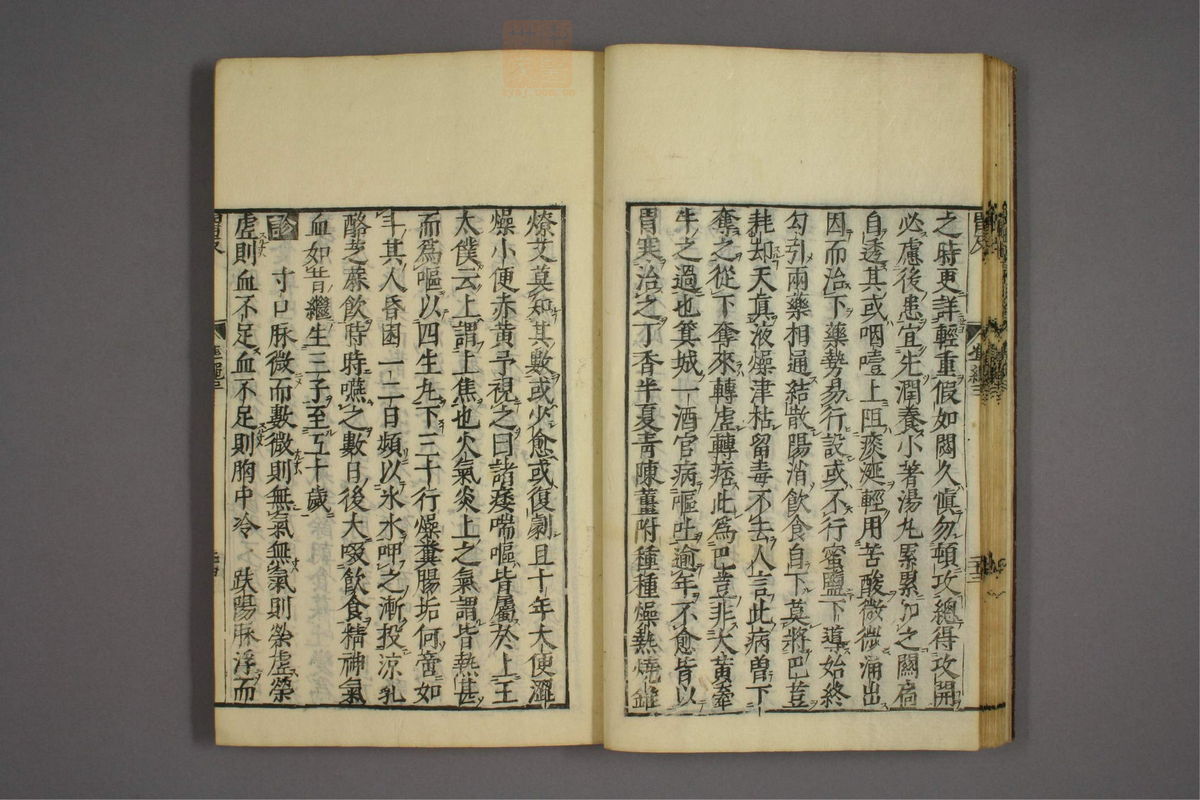 之時更詳輕重假如閟久愼勿頓攻總得攻開
必慮後患宜先潤養小著湯丸累累加之關扃
自透其或咽噎上阻痰涎輕用苦酸微微涌出
因而治下藥勢易行設或不行蜜鹽下導始終
勾引兩藥相通結散陽消飲食自下莫將巴荳
耗却天眞液燥津枯留毒不去人言此病曾下
奪之從下奪來轉虛轉痞此爲巴荳非大黃牽
牛之過也箕城一酒官病嘔吐逾年不愈皆以
胃寒治之丁香半夏靑陳薑附種種燥熱燒錐
燎艾莫知其數或少愈或復劇且十年大便澀
燥小便赤黃予視之曰諸痿喘嘔皆屬於上王
太僕云上謂上焦也火氣炎上之氣謂皆熱甚
而爲嘔以四生丸下三十行燥糞腸垢何啻如
斗其人昏困一二日頻以氷水呷之漸投涼乳
酪芝蔴飲時時嚥之數日後大啜飲食精神氣
血如昔繼生三子至五十歲
診 寸口脉微而數微則無氣無氣則榮虛榮
虛則血不足血不足則胸中冷 趺陽脉浮而